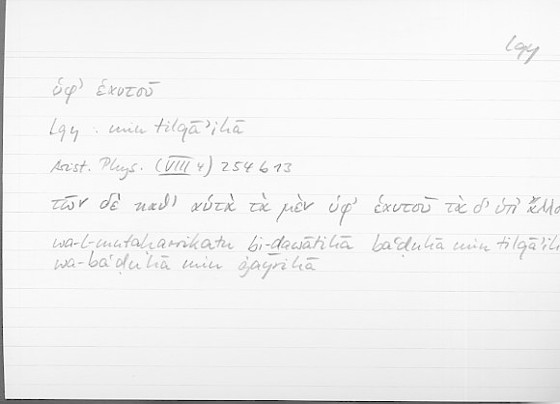 lqy
ὑφ' ἑαυτοῦ
lqy . min tilqāʾihā
Arist. Phys. (VIII 4) 254 b 13
τῶν δὲ καθ' αὑτὰ τὰ μὲν ὑφ' ἑαυτοῦ τὰ δ' ὑπ' ἄλλο
wa-l-mutaḥarrikatu bi-ḏawātihā baʿḍuhā min tilqāʾih
wa-baʿḍuhā min ġayrihā